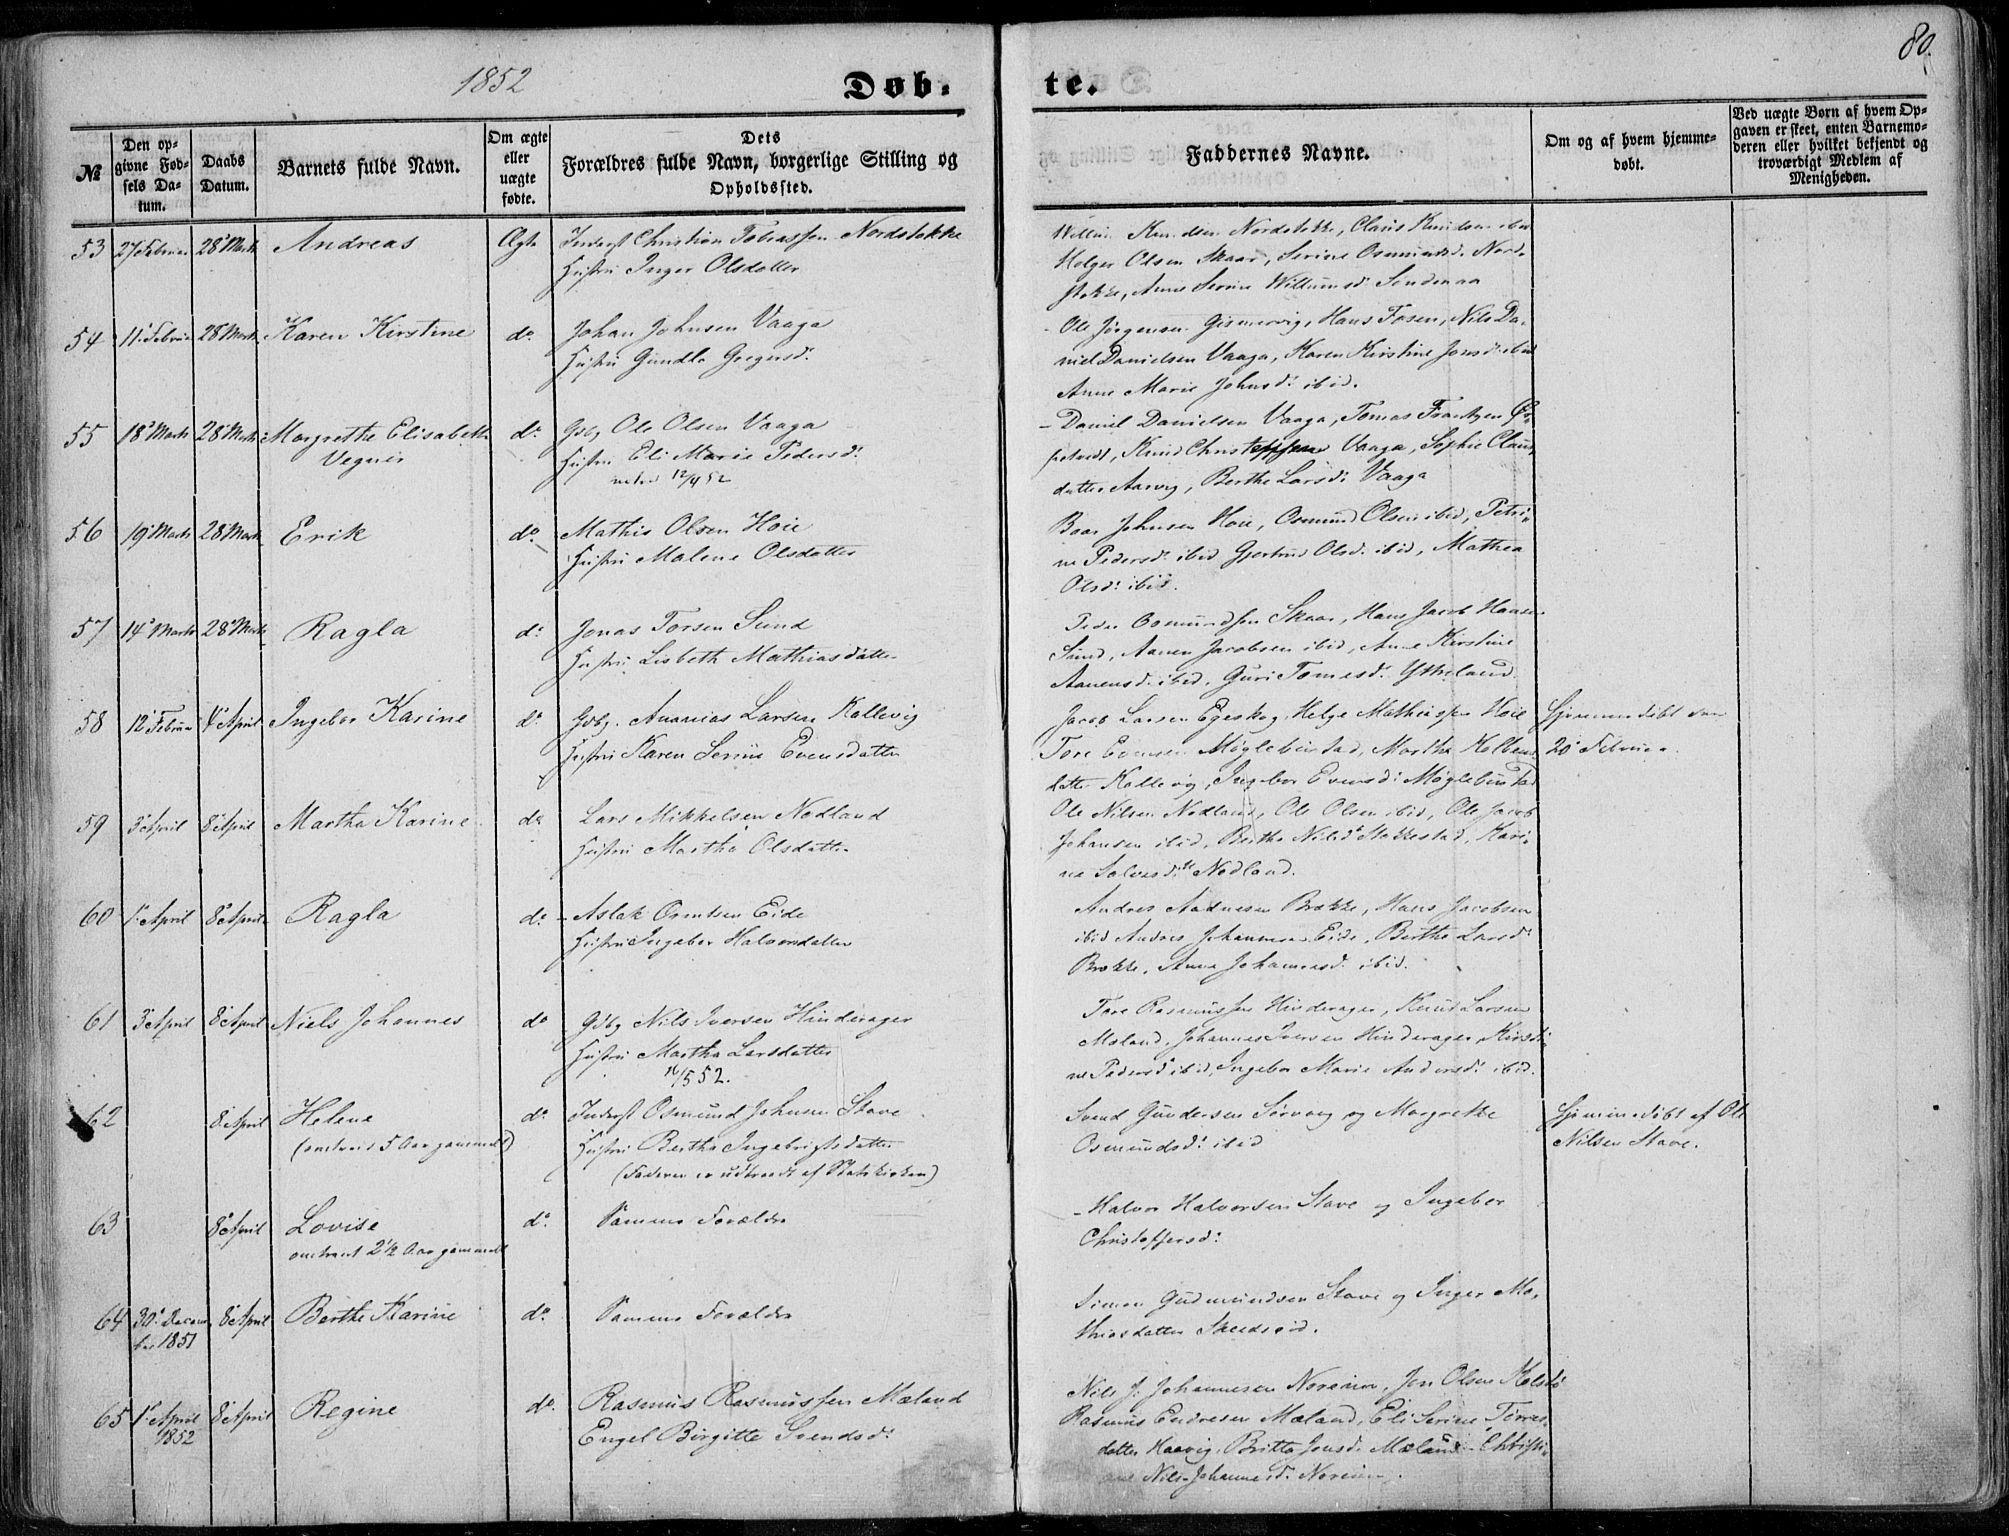 1852
Døb-
te.
80.
№
Den op-
givne Fød-
sels Da-
tum.
Daabs
Datum.
Barnets fulde Navn.
Om ægte
eller
uægte
fødte.
Dets
Forældres fulde Navn, borgerlige Stilling og
Opholdssted.
Faddernes Navne.
Om og af hvem hjemme-
døbt.
Ved uægte Børn af hvem Op-
gaven er skeet, enten Barnemo-
deren eller hvilket bekjendt og
troværdigt Medlem af
Menigheden.
53 27 Februar 28 Marts Andreas Ægte Inderst Christian Tobiassen Nordstokke
Hustru Inger Olsdatter
Willum Knudsen Nordstokke, Claus Knudsen ibid
Holger Olsen Skaar, Serine Osmundsd. Nord-
stokke, Anne Serine Willumsd. Sandenaa
54 11 Februar 28 Marts Karen Kirstine do. Johan Johnsen Vaaga
Hustru Gundla Gregersd.
Ole Jørgensen Gismervig, Hans Fosen, Nils Da-
niel Danielsen Vaaga, Karen Kirstine Jonsd. ibid
Anne Marie Johnsd. ibid.
55 18 Marts 28 Marts Margrethe Elisabeth do. Gbg Ole Olsen Vaaga
Vegner
Hustru Eli Marie Pedersd.
12/4 52
Daniel Danielsen Vaaga, Tomas Frantzen
Knud Christophersen Vaaga, Sophie Claus-
datter Aarvig, Berthe Larsd. Vaaga
56 19 Marts 28 Marts Erik do. Mathis Olsen Høie
Hustru Malene Olsdatter
Baar Johnsen Høie, Osmund Olsen ibid, Petri-
ne Pedersd. ibid Gjertrud Olsd. ibid, Mathea
Olsd. ibid.
57 14 Marts 28 Marts Ragla do. Jonas Torsen Sund
Hustru Lisbeth Mathiasdatter
Peder Osmundsen Skaar, Hans Jacob Hansen
Sund, Aanen Jacobsen ibid, Anne Kirstine
Aanensd. ibid, Guri Tomesd. Ytheland
58 12 Februar 4 April Ingebor Karine do. Gbg. Ananias Larsen Kallevig
Hustru Karen Serine Evensdatter
Jacob Larsen Egeskog, Helge Mathiassen Høie
Tore Evensen Møglebustad, Martha Kolbens-
datter Kallevig, Ingebor Evensd. Møglebustad
Hjemmedøbt den
20 Februar.
59 3 April 8 April Martha Karine do. Lars Mikkelsen Nødland
Hustru Martha Olsdatter
Ole Nilsen Nødland, Ole Olsen ibid, Ole Jacob
Johansen ibid, Berthe Nilsd. Stokkestad, Kari-
ne Salvesd. Nødland.
60 1 April 8 April Ragla do. Aslak Omtsen Eide
Hustru Ingebor Halvorsdatter
Andres Aadnesen Brække, Hans Jacobsen
ibid Andres Johannesen Eide, Berthe Larsd.
Brække, Anne Johannesd. ibid.
61 3 April 8 April Niels Johannes do Gbg Nils Iversen Hinderager
Hustru Martha Larsdatter
16/5 52.
Tore Rasmussen Hinderager, Knud Larsen
Mæland, Johannes Iversen Hinderager, Kirsti-
ne Pedersd. ibid, Ingebor Marie Andersd. ibid.
62 8 April Helene do. Inderst Osmund Johnsen Stave
(omtrent 5 Aar gammel)
Hustru Bertha Ingebrigtsdatter
(Faderen er udtraadt af Statskirken)
Svend Gundersen Sørvaag og Margrethe
Osmundsd. ibid
Hjemmedøbt af Ole
Nilsen Stave.
63 8 April Lovise do. Samme Forældre
omtrent 2 1/2 Aar gammel
Halvor Halvorsen Stave og Ingebor
Christoffersd.
64 30 Decem- 8 April Berthe Karine do. Samme Forældre
ber 1851
Simon Gudmundsen Stave og Inger Ma-
thiasdatter
65 1 April 8 April Regine do. Rasmus Rasmussen Mæland
1852
Engel Birgitte Svendsd.
Nils J. Johannesen Noreim, Jon Olsen Kalstø
Rasmus Endresen Mæland, Eli Serine Torres-
datter Haavig, Britta Jonsd. Mæland, Christi-
ane Nils-Johannesd. Noreim.